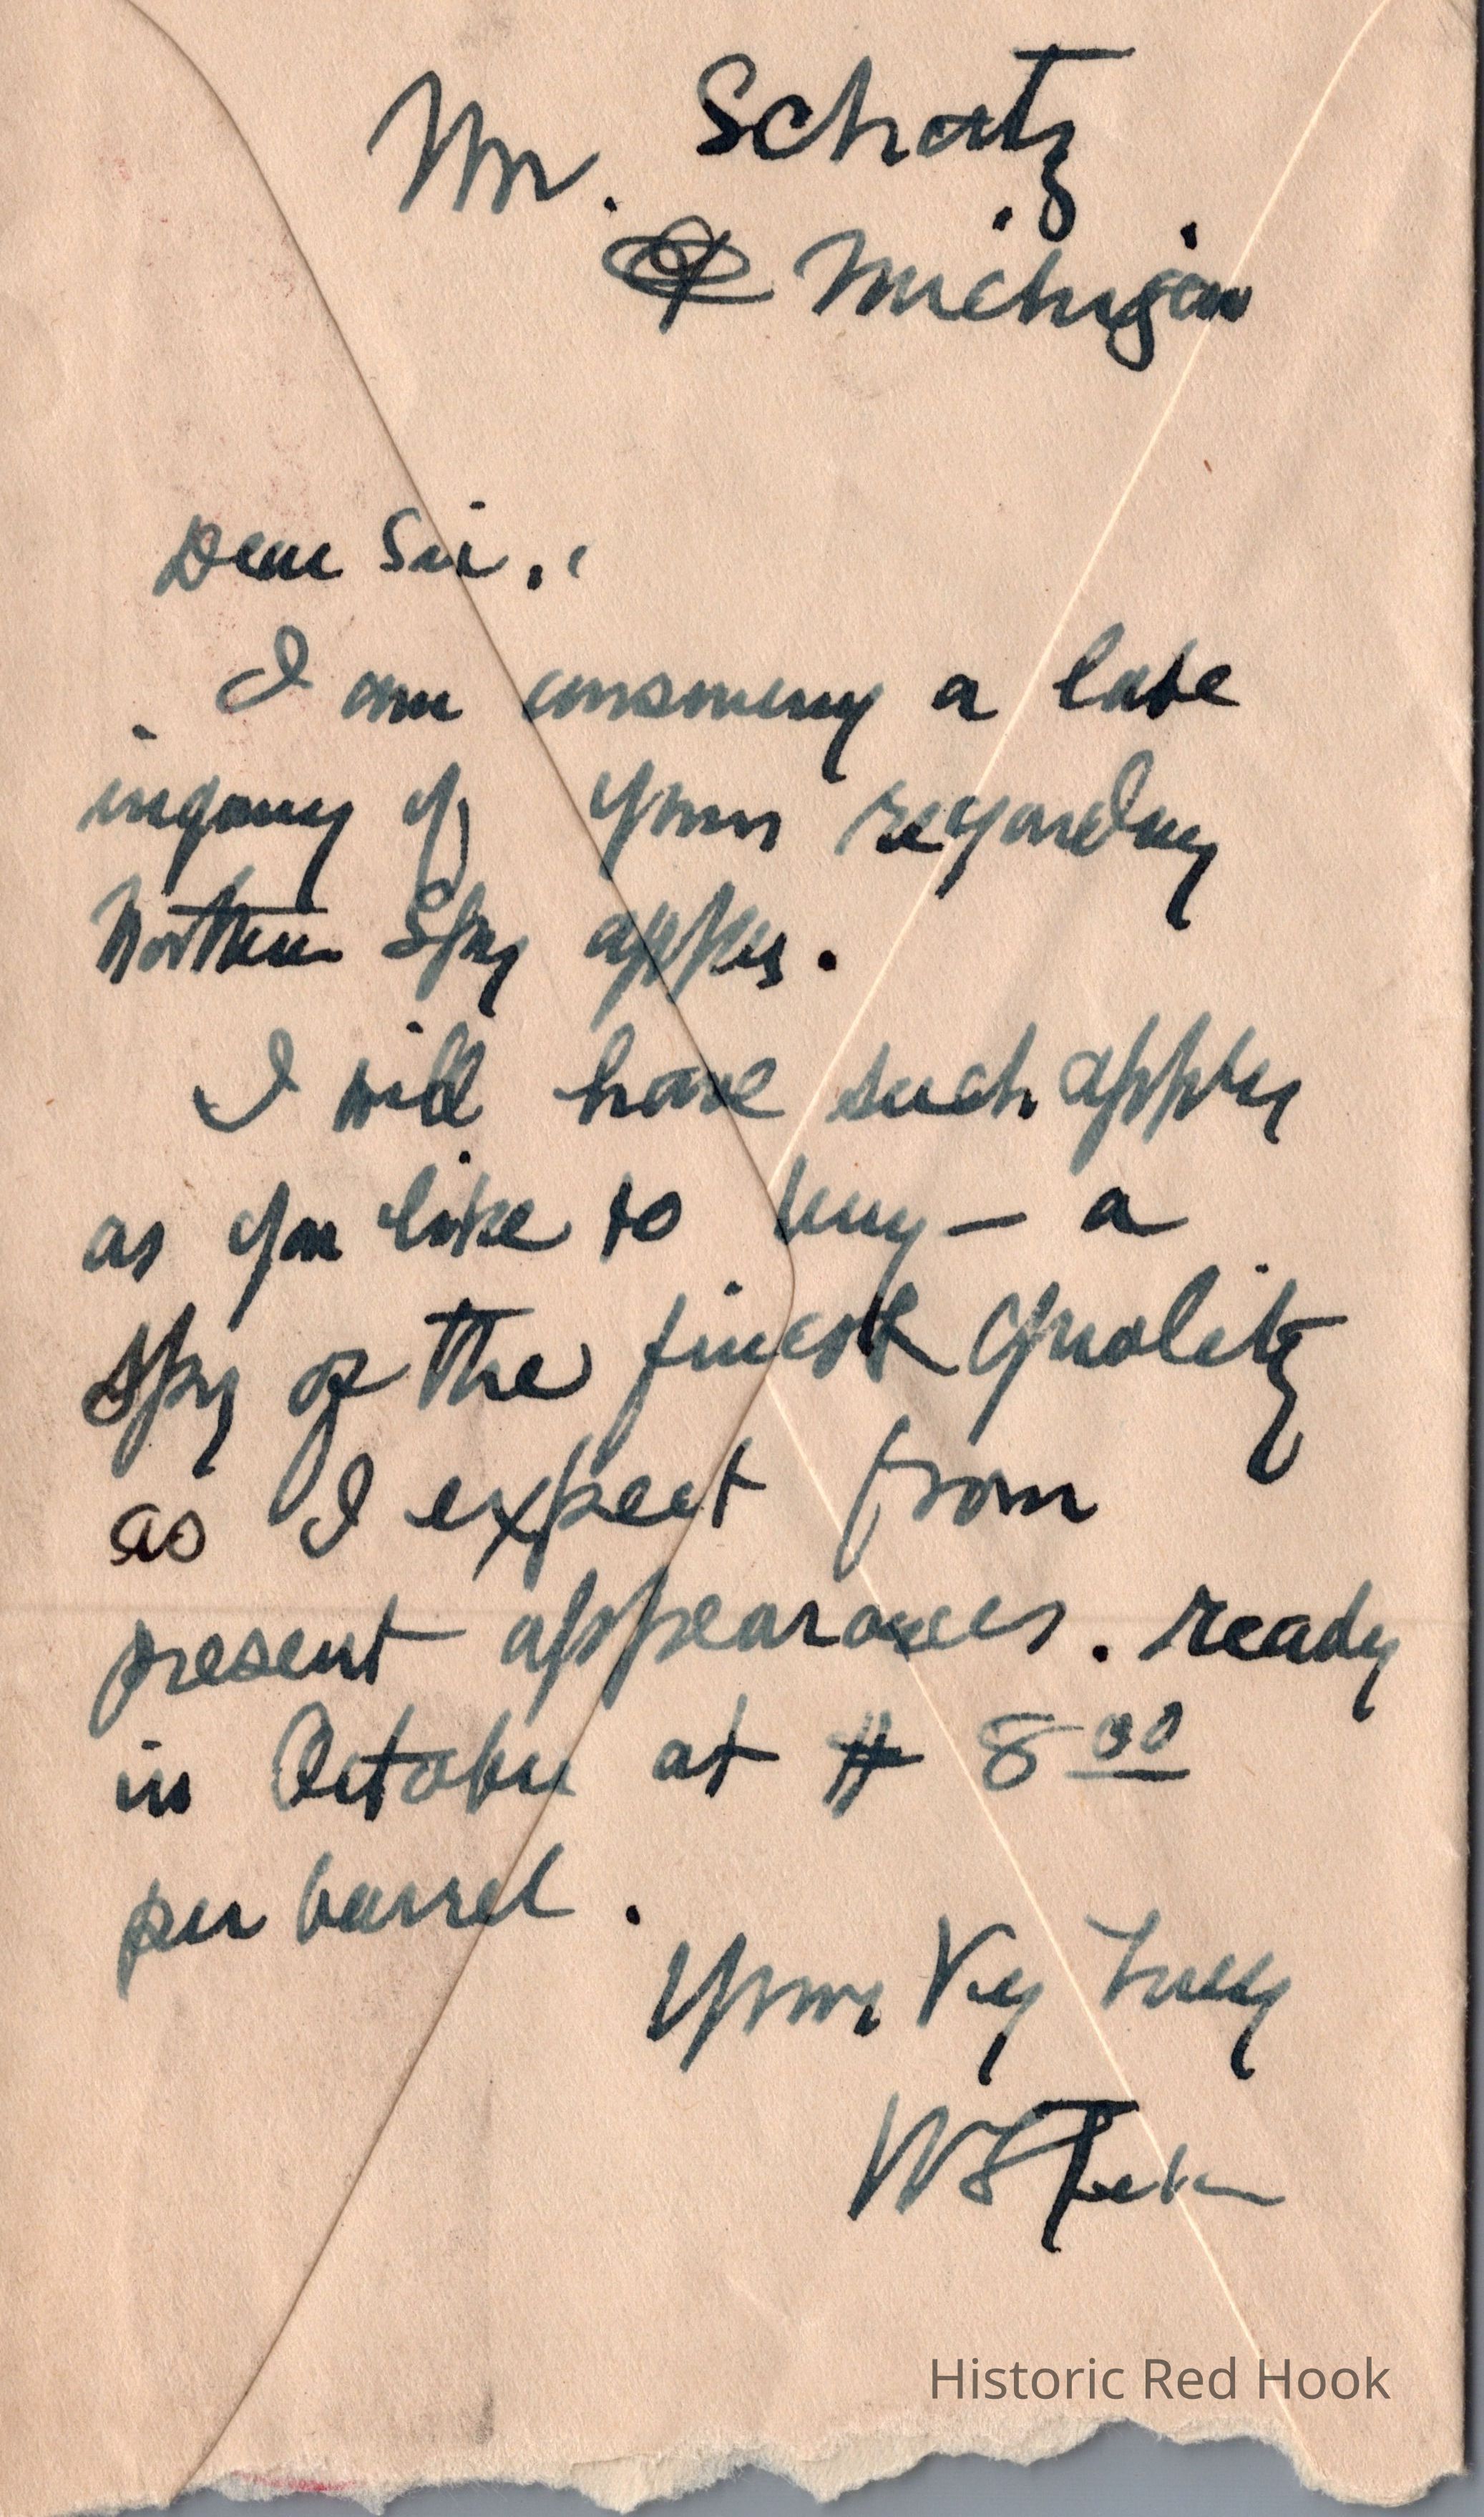 Mr. Schatz
Michigan
Dear Sir.,
I am answering a late
inquiry of yours regarding
Northern Spy apples.
I will have such apples
as you like to buy — a
spy of the finest quality
as I expect from
present appearances. ready
in October at $ 8 00
per barrel.
Yours Very Truly
Historic Red Hook